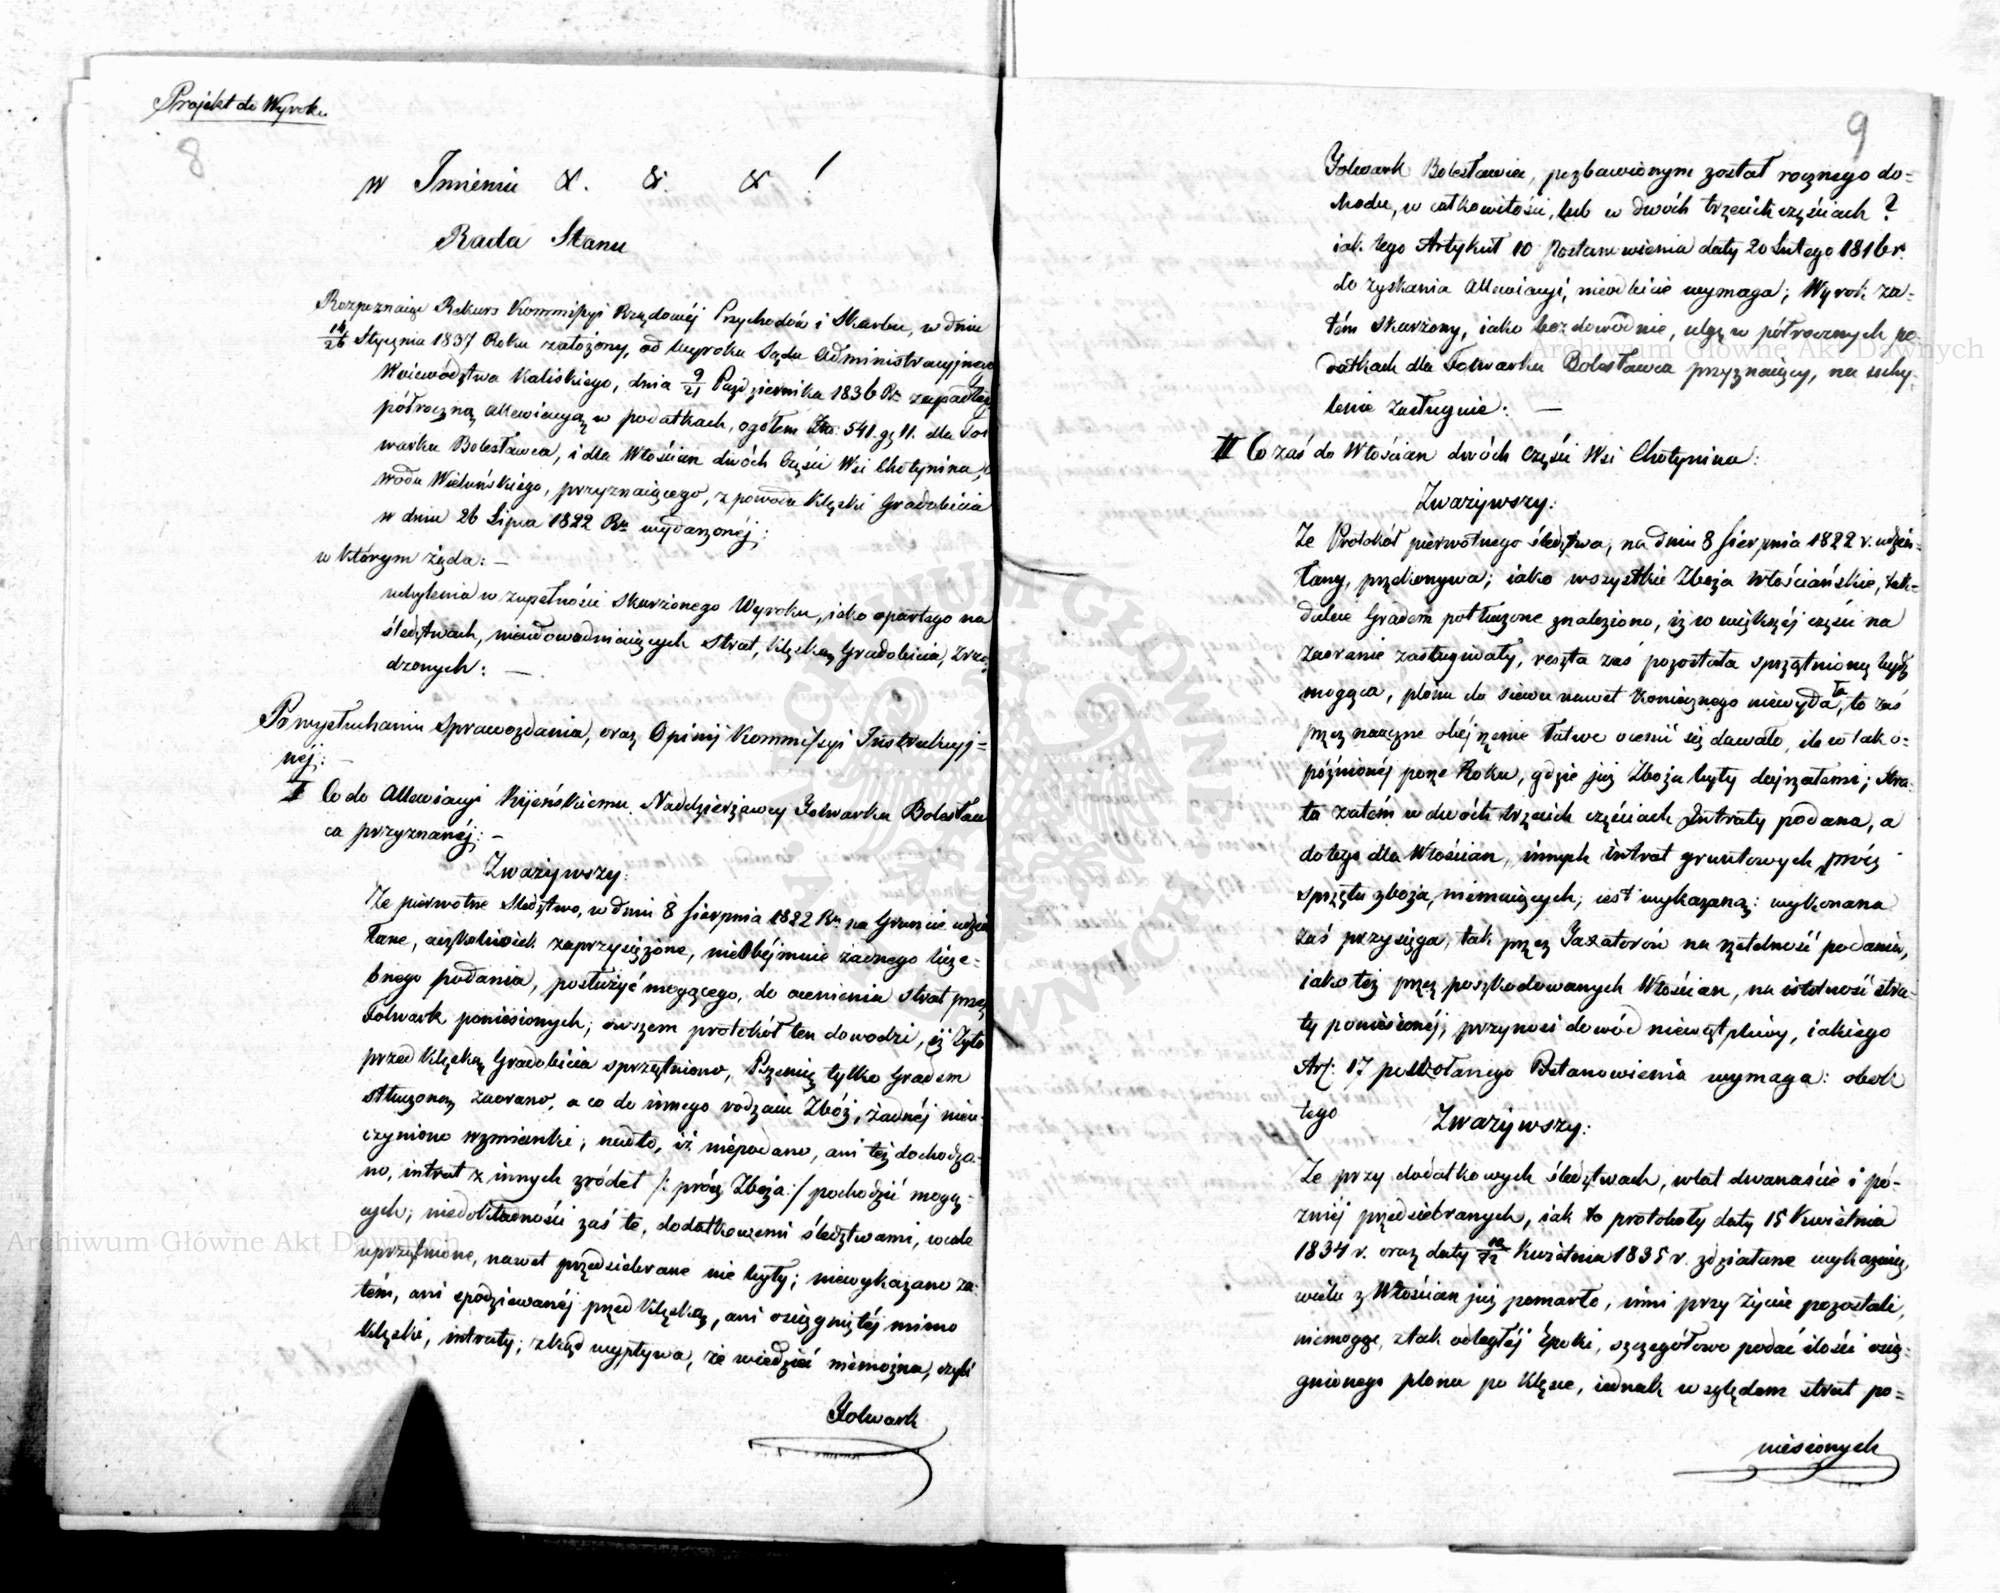 Projekt do Wyroku
8
w Imieniu &. &. & !
Rada Stanu
Rozpoznaiąc Rekurs Kommissyi Rządowéj Przychodów i Skarbu, w dniu
14/26 Stycznia 1837 Roku założony, od Wyroku Sądu Administracyjnego
Woiewództwa Kaliskiego, dnia 9/21 Października 1836 Ru zapadłego
półroczną allewiacyą w podatkach, ogółem Złp: 541. gr 11. dla Fol
warku Bolesławca, i dla Włościan dwóch Części Wsi Chotynina,
wodu Wieluńskiego, przyznaiącego, z powodu klęski Gradobicia
w dniu 26 Lipca 1822 Ru wydarzonéj;
w którym żąda: —
uchylenia w zupełności skarżonego Wyroku, iako opartego na
śledztwach, nieudowadniaiących strat, klęską Gradobicia, zrzą
dzonych: —
Po wysłuchaniu Sprawozdania, oraz Opinij Kommissyi Instrukcyj=
néj: —
I Co do Allewiacyi Kijeńskiemu Naddzierżawcy Folwarku Bolesław
ca przyznanéj: —
Zważywszy:
Ze pierwotne Sledztwo, w dniu 8 Sierpnia 1822 Ru na Gruncie udzia
łane, aczkolwiek zaprzysiężone, nieobéjmuie żadnego licze=
bnego podania, posłużyć mogącego, do ocenienia strat przez
Folwark poniesionych; owszem protokół ten dowodzi, iż Zyto
przed klęską Gradobicia sprzątniono, Pszenicę tylko Gradem
stłuczoną zaorano, a co do innego rodzaiu Zbóż, żadnéj nieu=
czyniono wzmianki; nadto, iż niepodano, ani też dochodza=
no, intrat z innych zródeł /: prócz Zboża :/ pochodzić mogą=
cych; niedokładności zaś te, dodatkowemi śledztwami, wcale
uprzątnione, nawet przedsiebrane nie były; niewykazano za=
tém, ani spodziewanéj przed klęską, ani osiągniętéj mimo
klęski, intraty; zkąd wypływa, że wiedzieć niemożna, czyli
Folwark
9
Folwark Bolesławiec, pozbawionym został rocznego do=
chodu, w całkowitości, lub w dwóch trzecich częściach ?
iak tego Artykuł 10 Postanowienia daty 20 Lutego 1816 r.
do zyskania Allewiacyi, nieodbicie wymaga; Wyrok za=
tém skarżony, iako bezdowodnie, ulgę w półrocznych po
datkach dla Folwarku Bolesławca przyznaiący, na uchy=
lenie zasługuie: —
II Co zaś do Włościan dwóch części Wsi Chotynina:
Zważywszy:
Ze Protokół pierwotnego śledztwa, na dniu 8 Sierpnia 1822 r. udzia=
łany, przekonywa; iako wszystkie Zboża włościańskie, tak=
dalece Gradem potłuczone znaleziono, iż w większéj części na
zaoranie zasługiwały, reszta zaś pozostała sprzątnioną bydź
mogąca, plonu do siewu nawet koniecznego niewydała, to zaś
przez naoczne obéjrzenie łatwo ocenić się dawało, ile w tak o=
późnionéj porze Roku, gdzie już Zboża były dojrzałemi; stra=
ta zatém w dwóch trzecich częściach Intraty podana, a
do tego dla Włościan, innych intrat gruntowych prócz
sprzętu zboża, niemaiących; iest wykazaną: wykonana
zaś przysięga, tak przez Taxatorów na rzetelność podania,
iako też przez poszkodowanych Włościan, na istotność stra=
ty poniesionéj, przynosi dowód niewątpliwy, iakiego
Art: 17 powołanego Postanowienia wymaga: obok
tego
Zważywszy:
Ze przy dodatkowych śledztwach, w lat dwanaście i pó=
zniéj przedsiebranych, iak to protokoły daty 15 Kwietnia
1834 r. oraz daty 10/22 Kwietnia 1835 r. zdziałane wykazuią,
wielu z Włościan już pomarło, inni przy życiu pozostali,
niemogąc, z tak odległéj Epoki, szczegółowo podać ilości osią=
gnionego plonu po klęsce, iednak względem strat po=
niesionych
Archiwum Główne Akt Dawnych
Archiwum Główne Akt Dawnych
ARCHIWUM GŁÓWNE AKT DAWNYCH